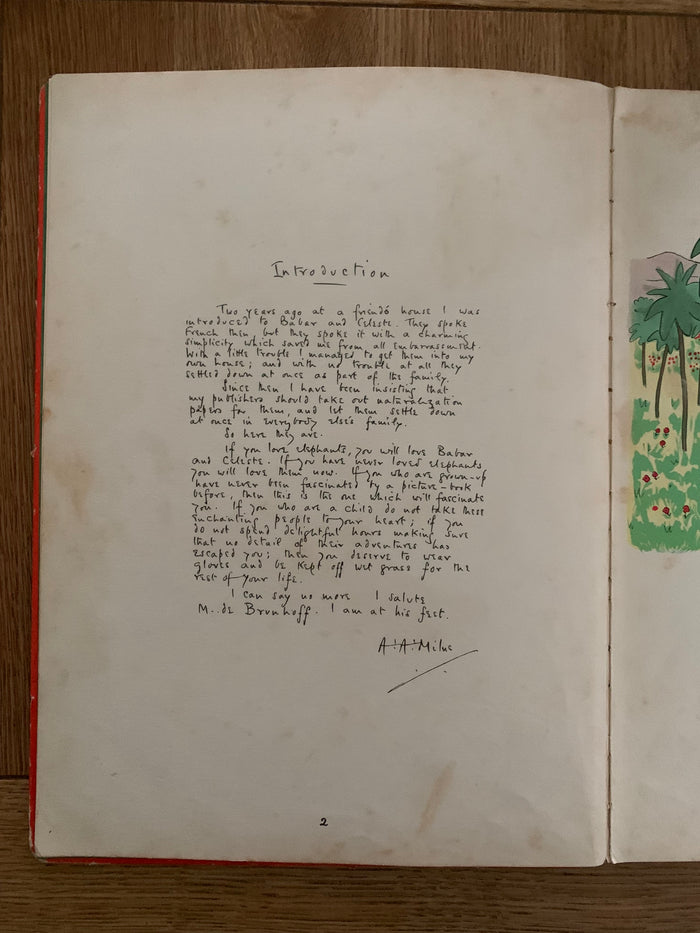 Introduction
Two years ago at a friend's house I was
introduced to Babar and Celeste. They spoke
French then, but they spoke it with a charming
simplicity which saved me from all embarrassment.
With a little trouble I managed to get them into my
own house; and with no trouble at all they
settled down at once as part of the family.
Since then I have been insisting that
my publishers should take out naturalization
papers for them, and let them settle down
at once in everybody else's family.
So here they are.
If you love elephants, you will love Babar
and Celeste. If you have never loved elephants
you will love them now. If you who are grown-up
have never been fascinated by a picture-book
before, then this is the one which will fascinate
you. If you who are a child do not take these
enchanting people to your heart; if you
do not spend delightful hours making sure
that no detail of their adventures has
escaped you; then you deserve to wear
gloves and be kept off wet grass for the
rest of your life.
I can say no more I salute
M. de Brunhoff. I am at his feet.
A.A. Milne
2